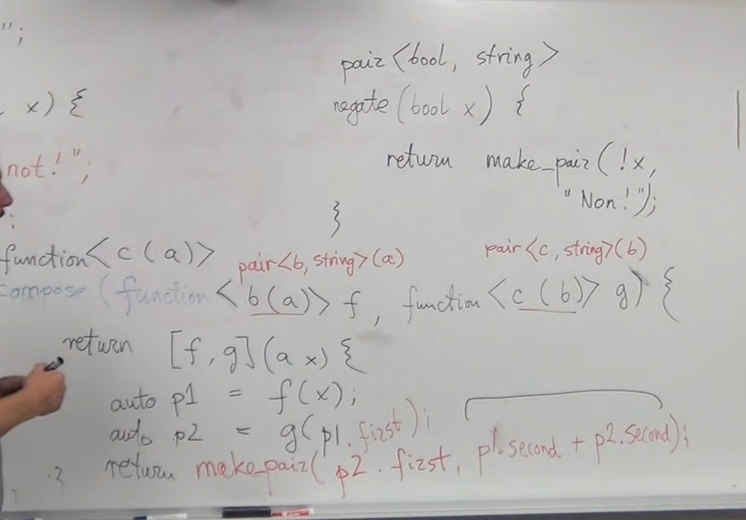 ";
pair<bool, string>
negate (bool x) {
x) {
return make_pair(!x,
not!";
"Non!");
}
function<c(a)>
pair<b, string>(a) pair<c, string>(b)
compose (function<b(a)> f, function<c(b)> g) {
return [f,g](a x) {
auto p1 = f(x);
auto p2 = g(p1.first);
return make_pair(p2.first, p1.second + p2.second);